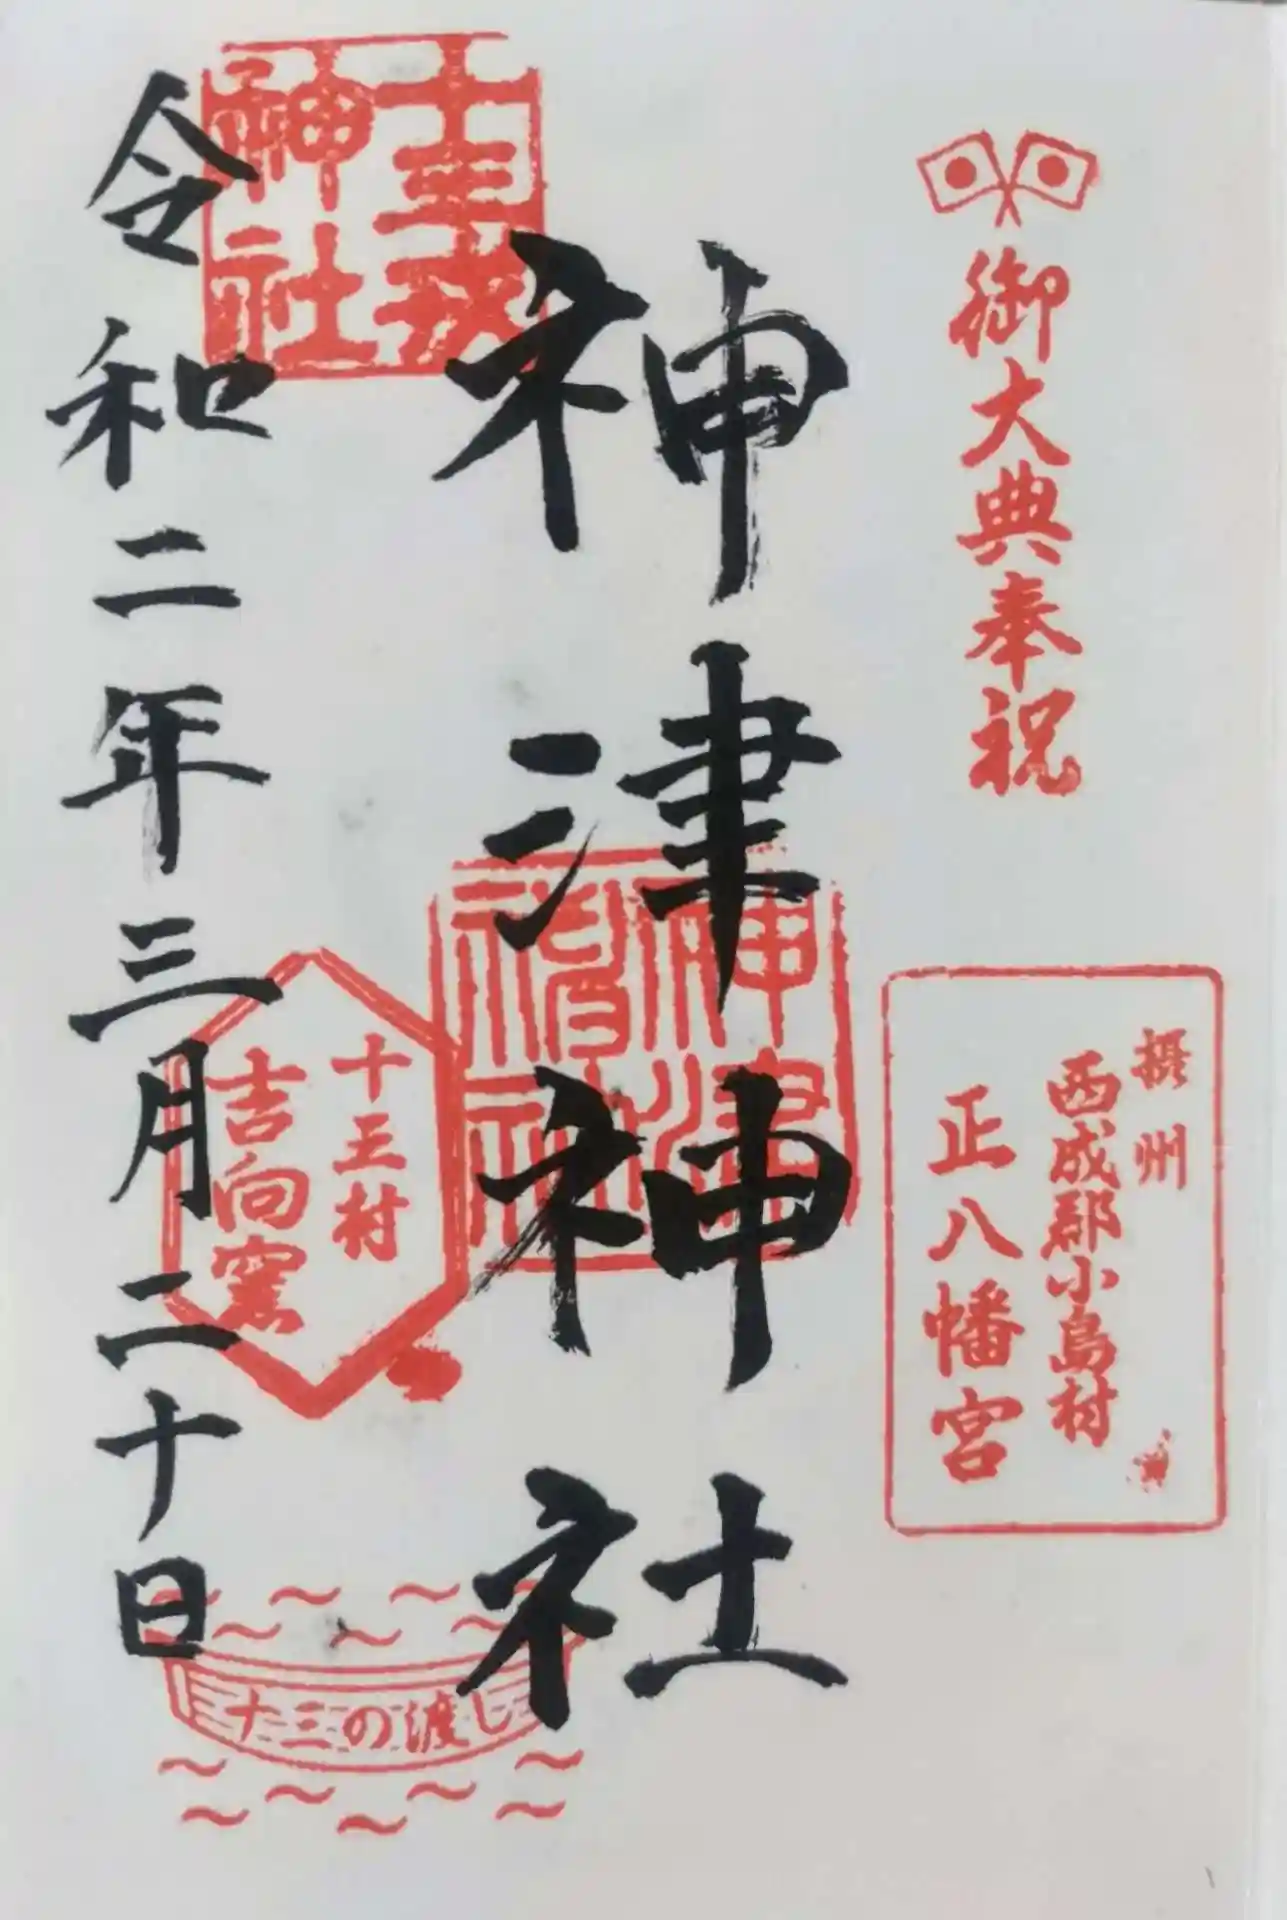 御大典奉祝
摂州
西成郡小島村
正八幡宮
神津神社
神津
神社
十三戎
神社
十三村
吉向窯
十三の渡し
令和二年三月二十日